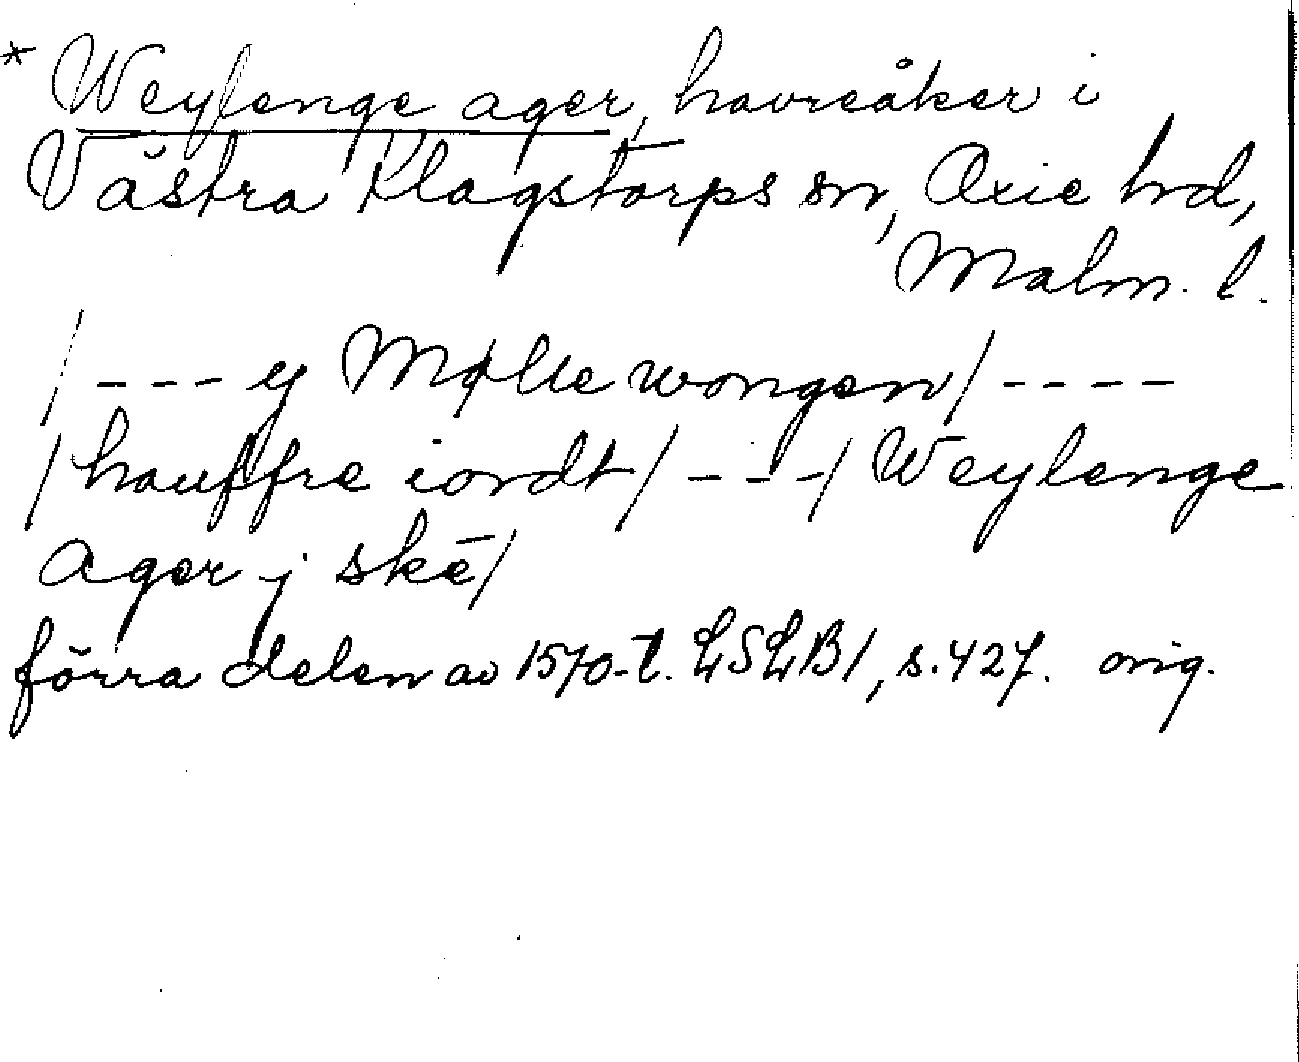 * Weylenge ager, havreåker i
Västra Klagstorps sn, Oxie hd,
Malm. l.
/--- ej Mølle wongen/----
/hauffre iordt/---/Weylenge
Ager j skē/
förra delen av 1570-t. LSLB1, s.427. orig.